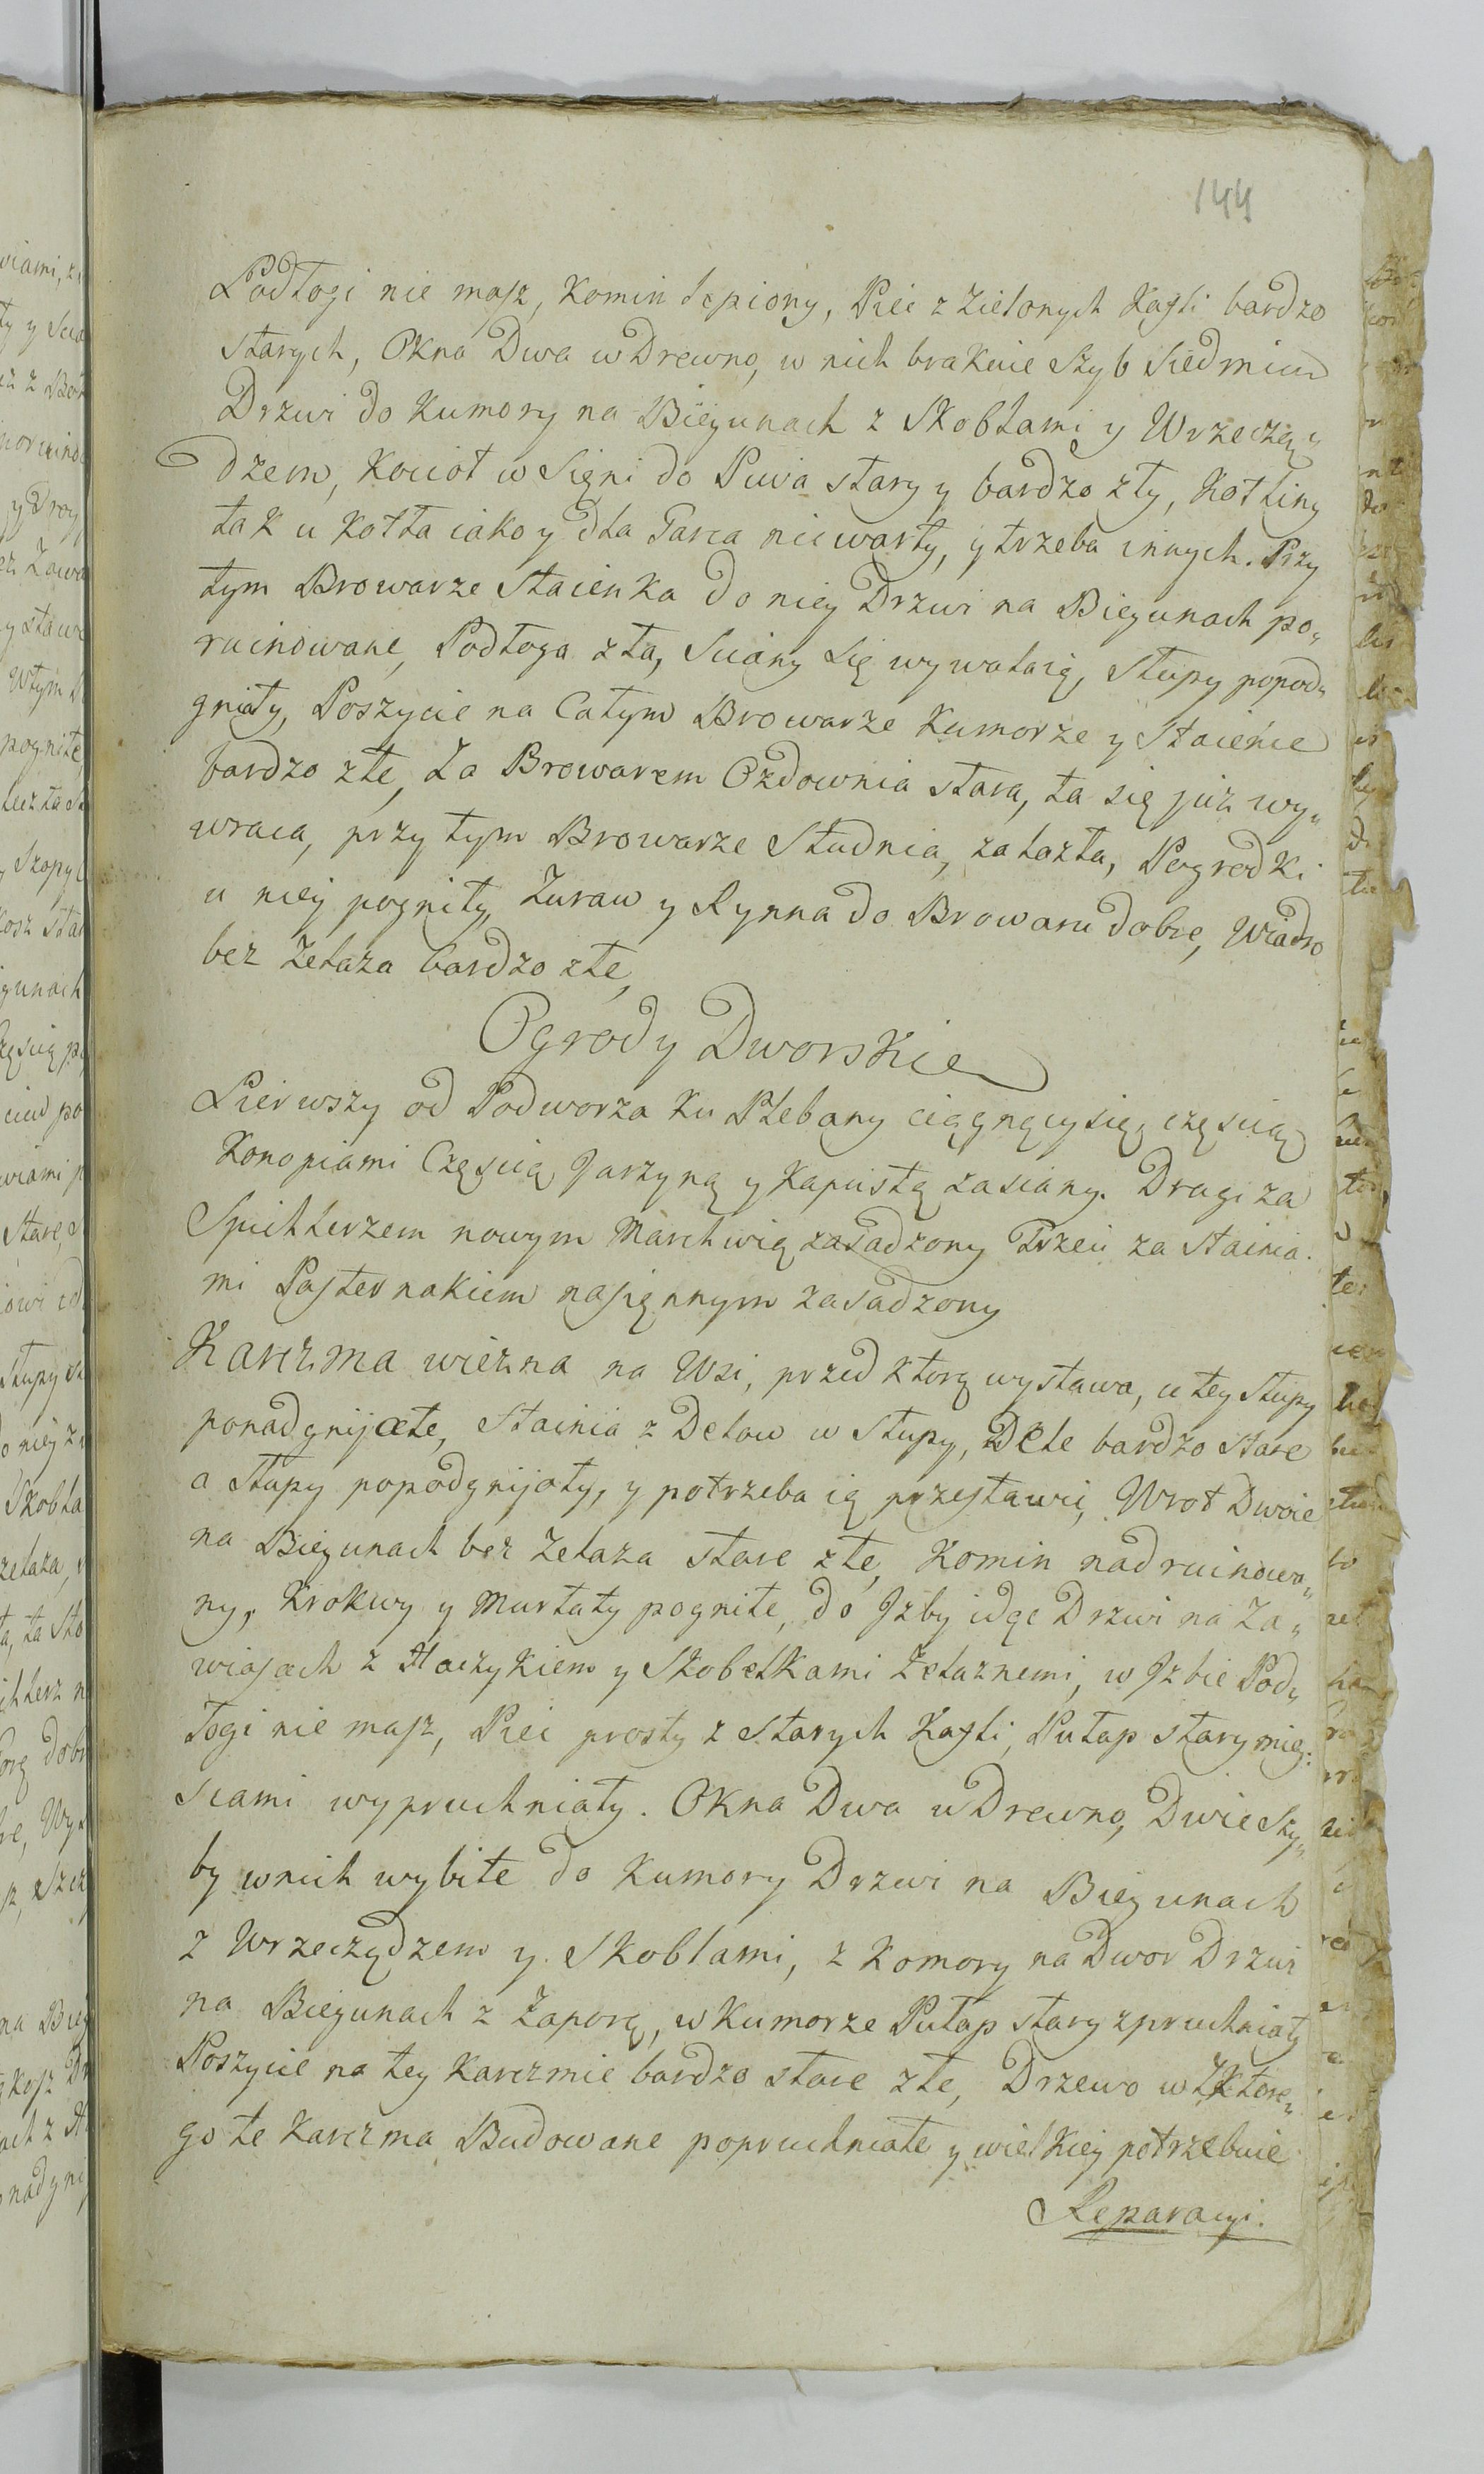 144
Podłogi nie masz, Komin lepiony, Piec z Zielonych Kafli bardzo
starych, Okna Dwa w Drewno, w nich brakuie Szyb Siedmiu
Drzwi do Kumory na Biegunach z Skoblami y Wrzeczą„
dzem, Kocioł w Sięni do Piwa stary y bardzo zły, Kotliny
tak u Kotła iako y dla Garca nic warty, y trzeba innych. Przy
tym Browarze Staienka do niey Drzwi na Biegunach po„
ruinowane, Podłoga zła, Sciany się wywalaią, Słupy popod„
gniły, Poszycie na Całym Browarze Kumorze y Staience
bardzo złe, Za Browarem Ozdownia stara, ta się już wy„
wraca, przy tym Browarze Studnia, zalazła, Pogrodki
u niey pogniły, Zuraw y Rynna do Browaru dobre, Wiadro
bez Zelaza bardzo złe,
Ogrody Dworskie
Pierwszy od Podworza ku Plebany ciągnącysię, częscią
Konopiami Częscią Jarzyną y Kapustą zasiany. Drugi za
Spichlerzem nowym Marchwią zasadzony Trzeci za Stainia.
mi Pasternakiem nasięnnym zasadzony
Karczma wiezna na Wsi, przed ktorą wystawa, u tey Słupy
ponadgnijałe, Stainia z Delow w Słupy, Dele bardzo stare
a Słupy popodgnijały, y potrzeba ią przestawić, Wrot Dwoie
na Biegunach bez Zelaza stare złe, Komin nadruinowa„
ny, Krokwy y Murłaty pogniłe, do Jzby idąc Drzwi na Za„
wiasach z Haczykiem y Skobelkami Zelaznemi, w Jzbie Pod„
łogi nie masz, Piec prosty z starych Kafli, Pułap stary miey.
scami wypruchniały. Okna Dwa w Drewno, Dwie Szy„
by w nich wybite do Kumory Drzwi na Biegunach
z Wrzecządzem y Skoblami, z Komory na Dwor Drzwi
na Biegunach z Zaporą, w Kumorze Pułap stary zpruchniały
Poszycie na tey Karczmie bardzo stare złe, Drzewo w Zktore„
go te Karczma Budowane popruchniałe y wielkiey potrzebuie
Reparacyi.